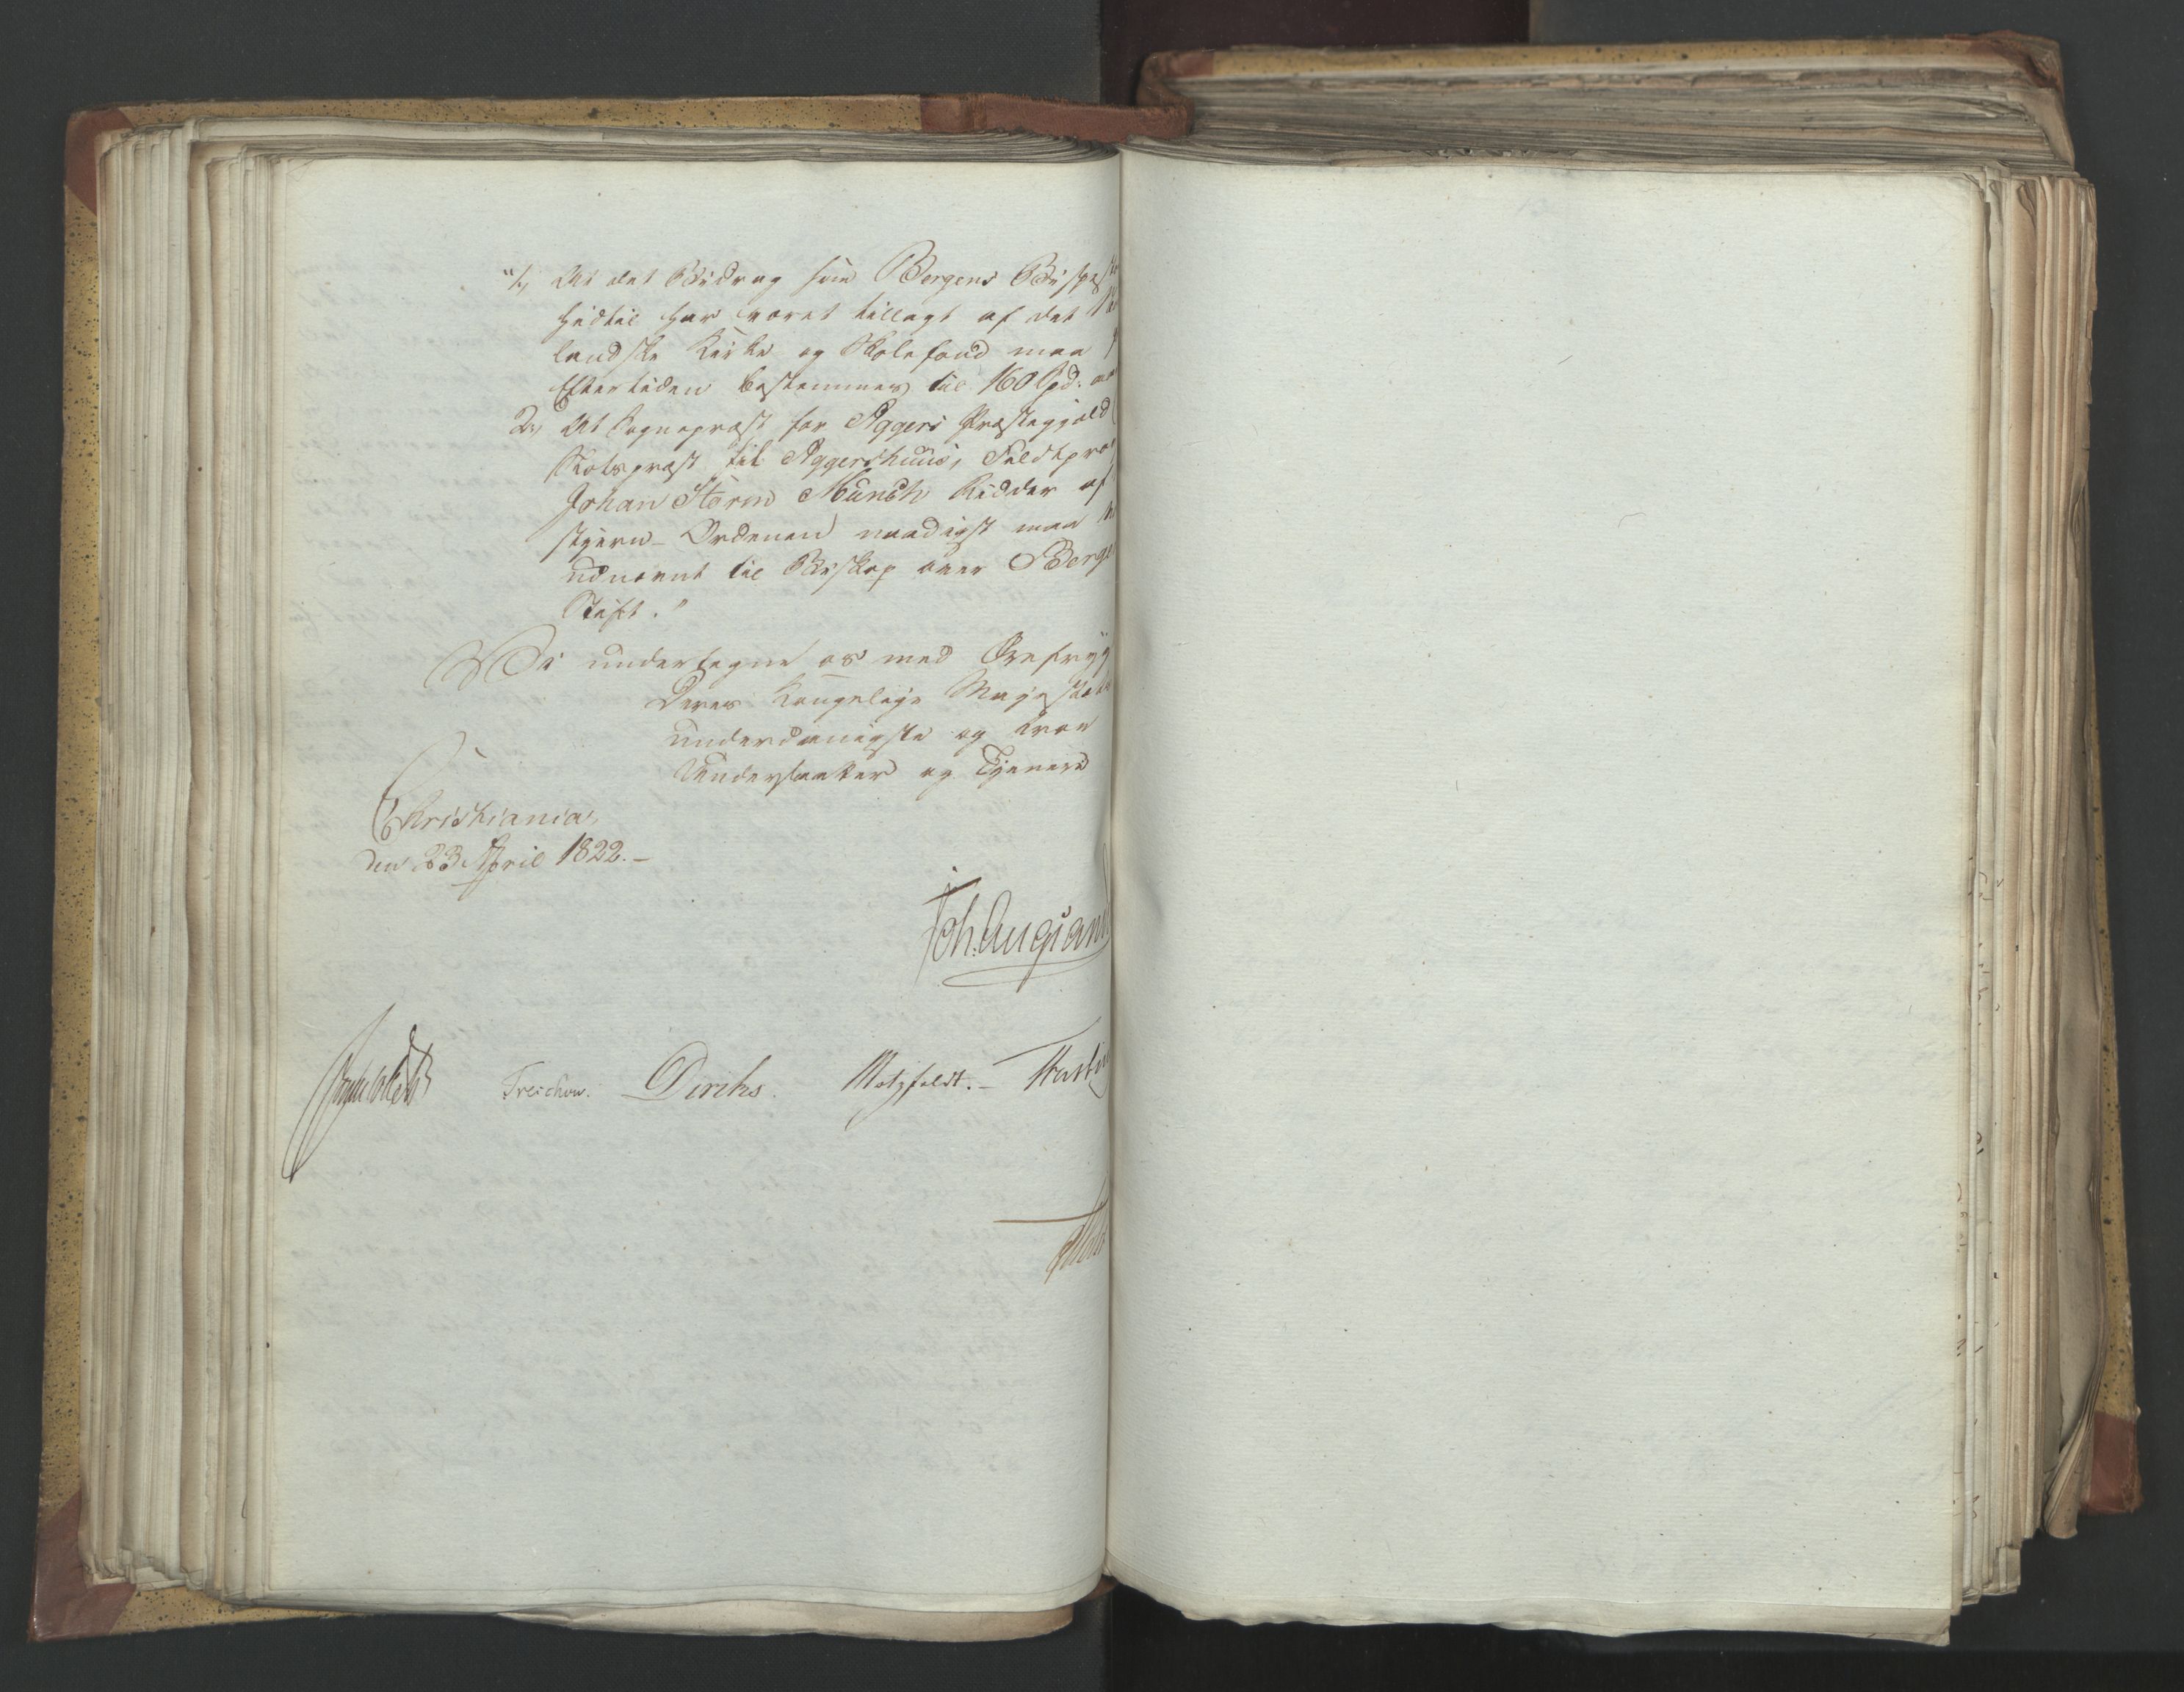 "1, At det Bidrag som Bergens Bispes
hidtil har været tillagt af det
landske Kirke og Skolefond maa
Eftertiden bestemmes til 160 Spd.
2, At Sognepræst for Aggers Præstegjæld
Slotspræst til Aggershuus, Feldtpro
Johan Storm Munch Ridder af
stjern-Ordenen naadigst maa
udnævnt til Biskop over Berge
Stift."
Vi undertegne os med Ærefrygt
Deres Kongelige Majestæts
underdanigste og troe
Undersaatter og Tjenere
Christiania,
den 23 April 1822.-
Joh. Aug: Sand
Treschow. Diriks. Motzfeldt.-